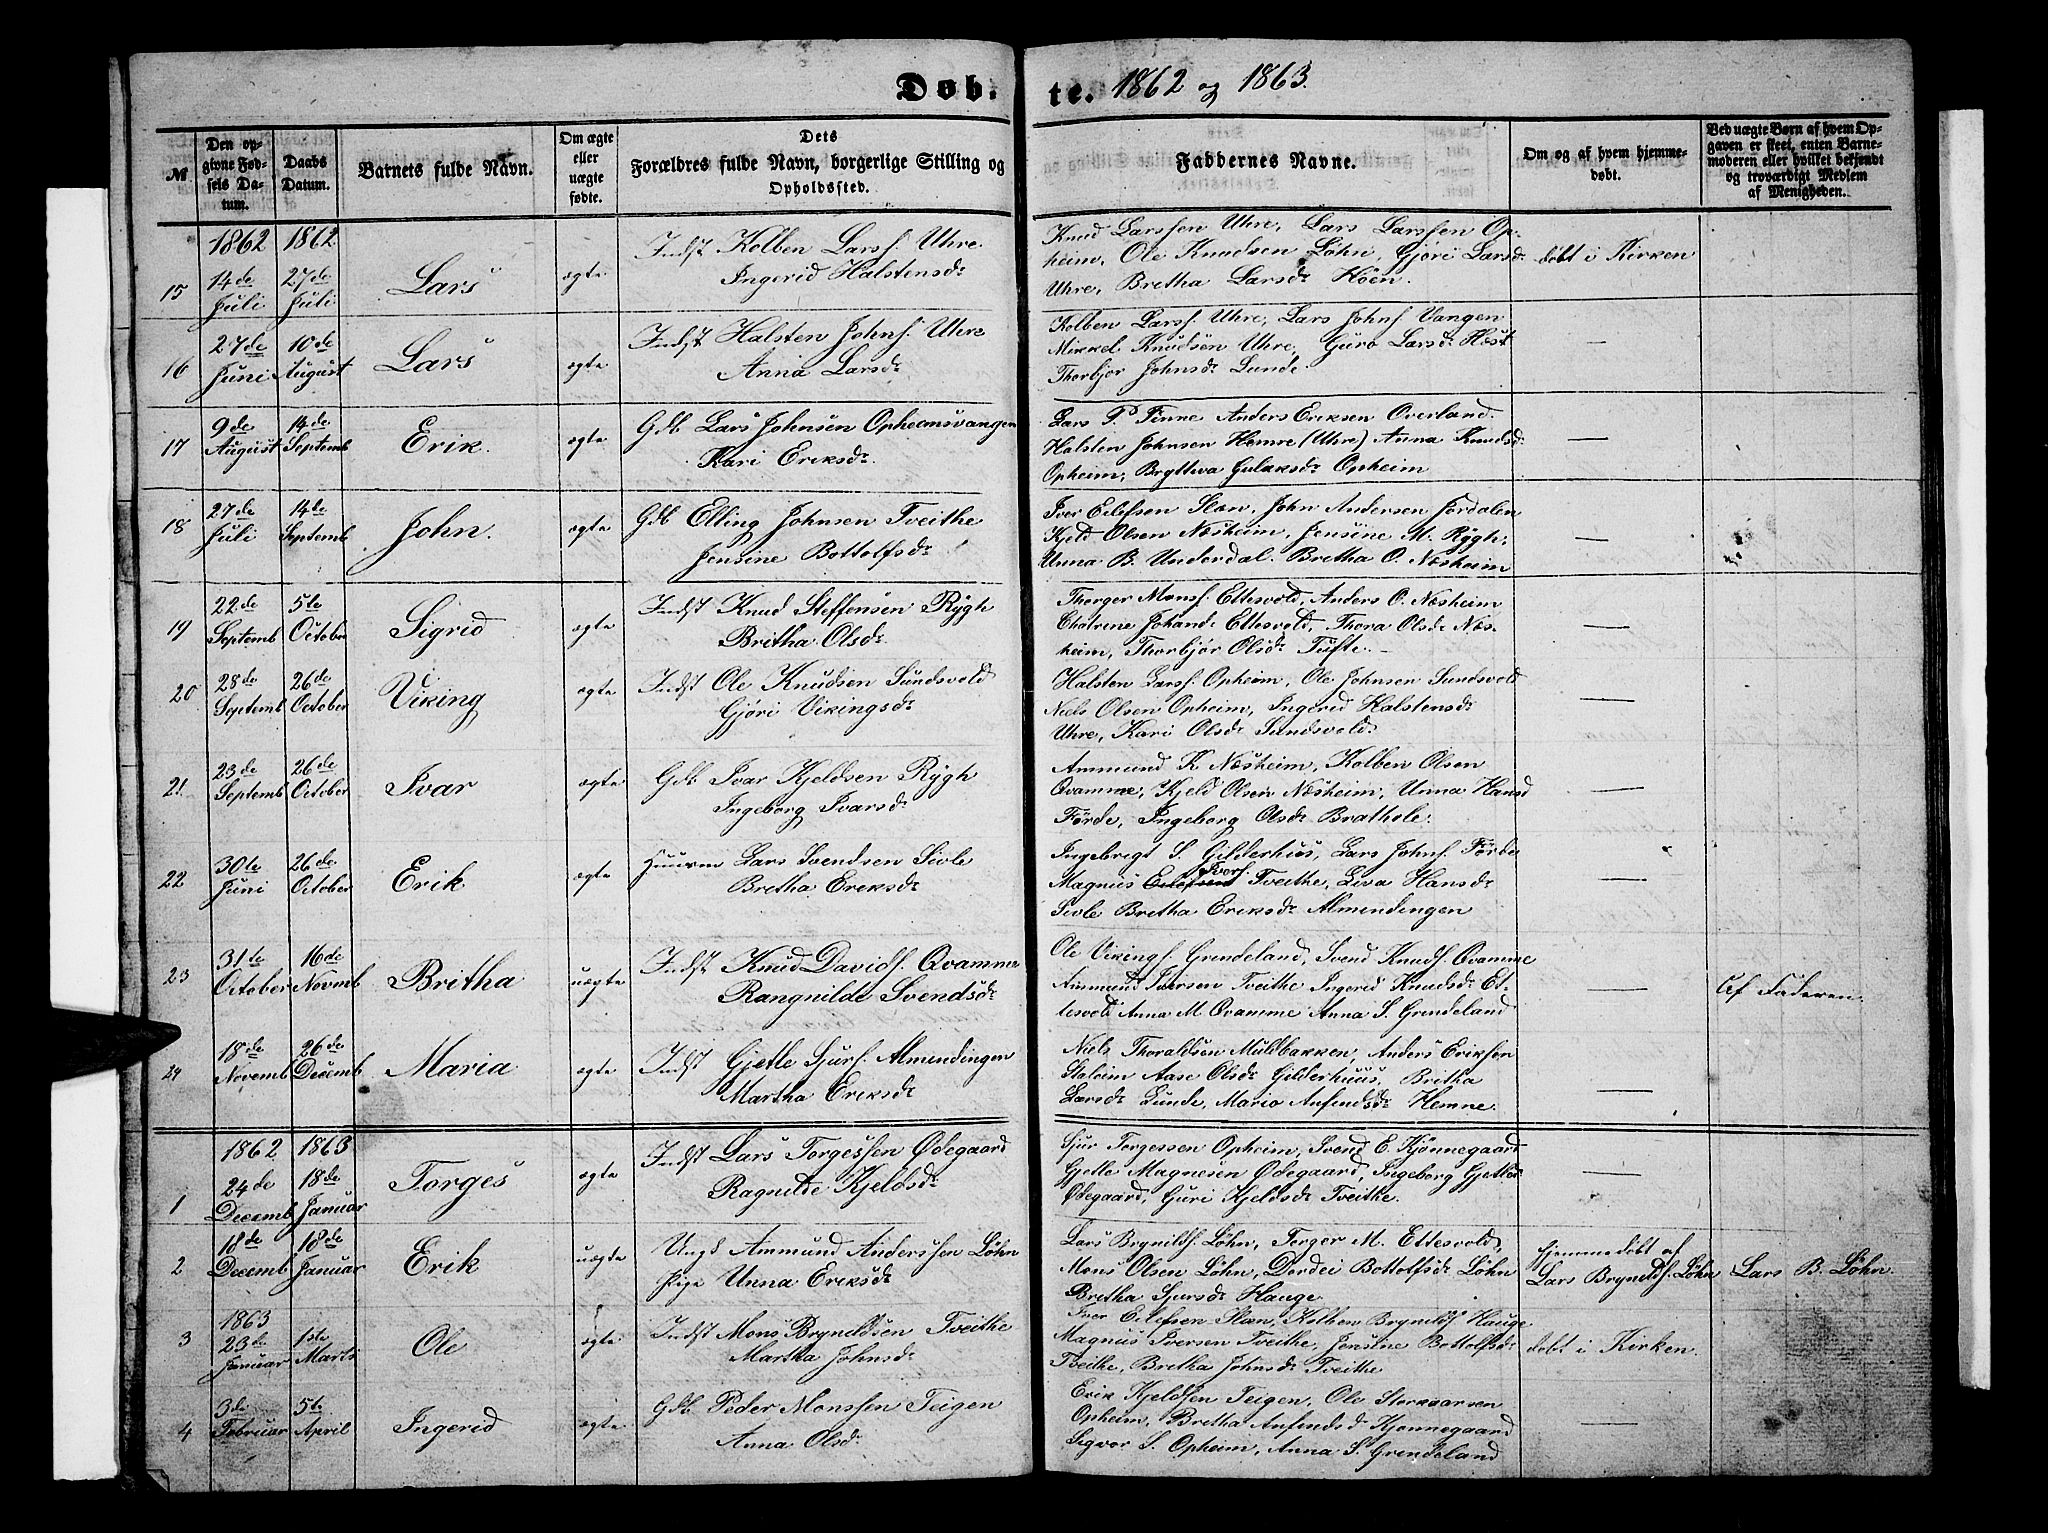 Døb- te. 1862 og 1863.
№ | Den op- givne Fød- sels Da- tum. | Daabs Datum. | Barnets fulde Navn. | Om ægte eller uægte fødte. | Dets Forældres fulde Navn, borgerlige Stilling og Opholdssted. | Faddernes Navne. | Om og af hvem hjemme- døbt. | Ved uægte Børn af hvem Op- gaven er skeet, enten Barne- moderen eller hvilket bekjendt og troværdigt Medlem af Menigheden.
1862 1862
15 14de Juli 27de Juli Lars ægte Indst Kolben Larss. Uhre
Ingerid Halstensdr
Knud Larssen Uhre, Lars Larssen Op-
heim, Ole Knudsen Løhn, Gjøri Larsdr
Uhre, Bretha Larsdr Höen.
døbt i Kirken
16 27de Juni 10de August Lars ægte Indst Halsten Johns. Uhre
Anna Larsdr
Kolben Larss. Uhre, Lars Johns. Vangen
Mikkel Knudsen Uhre, Guro Larsdr Høst
Thorbjør Johnsdr Lunde.
—
17 9de August 14de Septemb Erik. ægte Gdb Lars Johnsen Opheimsvangen
Kari Eriksdr
Lars P. Finne Anders Eriksen Overland.
Halsten Johnsen Hemre (Uhre) Anna Knudsd.
Opheim, Bryttva Gulaksdr Opheim
—
18 27de Juli 14de Septemb John. ægte Gdb Elling Johnsen Tveithe
Jensine Bottolfsdr
Iver Eilefsen Slæn, John Andersen Jordalen
Kjeld Olsen Næsheim, Jensine M. Rÿgh.
Unna B. Underdal. Bretha O. Næsheim
—
19 22de Septemb 5te October Sigrid ægte Indst Knud Steffensen Rÿgh
Britha Olsdr
Thorger Monss. Ettesvold, Anders O. Næsheim
Johandr Ettesvold, Thora Olsdr Næs-
heim, Thorbjør Olsdr Tufte. —
—
20 28de Septemb 26de October Viking ægte Indst Ole Knudsen Sundsvold
Gjøri Vikingsdr
Halsten Larss. Opheim, Ole Johnsen Sundsvold
Niels Olsen Opheim, Ingerid Halstensdr
Uhre, Kari Olsdr Sundsvold.
—
21. 23de Septemb 26de October Ivar ægte Gdb Ivar Kjeldsen Rÿgh
Ingeborg Ivarsdr
Ammund K. Næsheim, Kolben Olsen
Qvamme, Kjeld Olsen Næsheim, Unna Hansd
Förde, Ingeborg Olsdr Brathole.
—
22 30te Juni 26de October Erik ægte Huusm Lars Svendsen Sivle
Bretha Eriksdr
Ingebrigt S. Gilderhuus, Lars Johns. Förde
Magnus Eilefsen Ivors. Tveithe, Liva Hansdr
Sivle Bretha Eriksdr Almendingen
—
23 31te October 16de Novmb Britha uægte Indst Knud Davids. Qvamme
Rangnilde Svendsdr
Ole Vikings. Grendeland, Svend Knuds. Qvamme
Ammund Iversen Tveithe Ingerid Knudsdr Et-
tesvold Anna M. Qvamme Anna S. Grendeland
—
Af Faderen.
24 18de Novemb 26de Decemb Maria ægte Indst Gjetle Sjurs. Almendingen
Martha Eriksdr
Niels Thoraldsen Muldbakken, Anders Eriksen
Staleim Aase Olsdr Gilderhuus, Britha
Larsdr Lunde, Maria Anfendsdr Hemne.
—
1862 1863
1 24de Decemb 18de Januar Torges ægte Indst Lars Torgessen Ødegaard
Ragnilde Kjeldsdr
Sjur Torgessen Opheim, Svend E. Kjønnegaard
Gjetle Magnesen Ødegaard, Ingeborg Gjetlesd
Ødegaard, Guri Kjeldsdr Tveithe.
—
2 18de Decemb 18de Januar Erik uægte Ungk Ammund Anderssen Løhn
Pige Unna Eriksdr
Lars Brynilds. Løhn, Torger M. Ettesvold,
Mons Olsen Løhn, Dordei Bottolfsdr Løhn
Bretha Sjursdr Hauge
hjemmedøbt af
Lars Brynilds. Løhn
Lars B. Løhn.
1863
3 23de Januar 1ste Marts Ole ægte Indst Mons Bryneldsen Tveithe
Martha Johnsdr
Iver Eilefsen Slæn, Kolben Brynilds Hauge
Magnus Iversen Tveithe, Jensine Bottolfsdr
Tveithe, Bretha Johnsdr Tveithe
døbt i Kirken.
4 3de Februar 5te April Ingerid ægte Gdb Peder Monssen Teigen
Anna Olsdr
Erik Kjeldsen Teigen, Ole Storkaarsen
Opheim, Bretha Anfindsd Kjønnegaard
Sigvor S. Opheim, Anna S. Grendeland
—